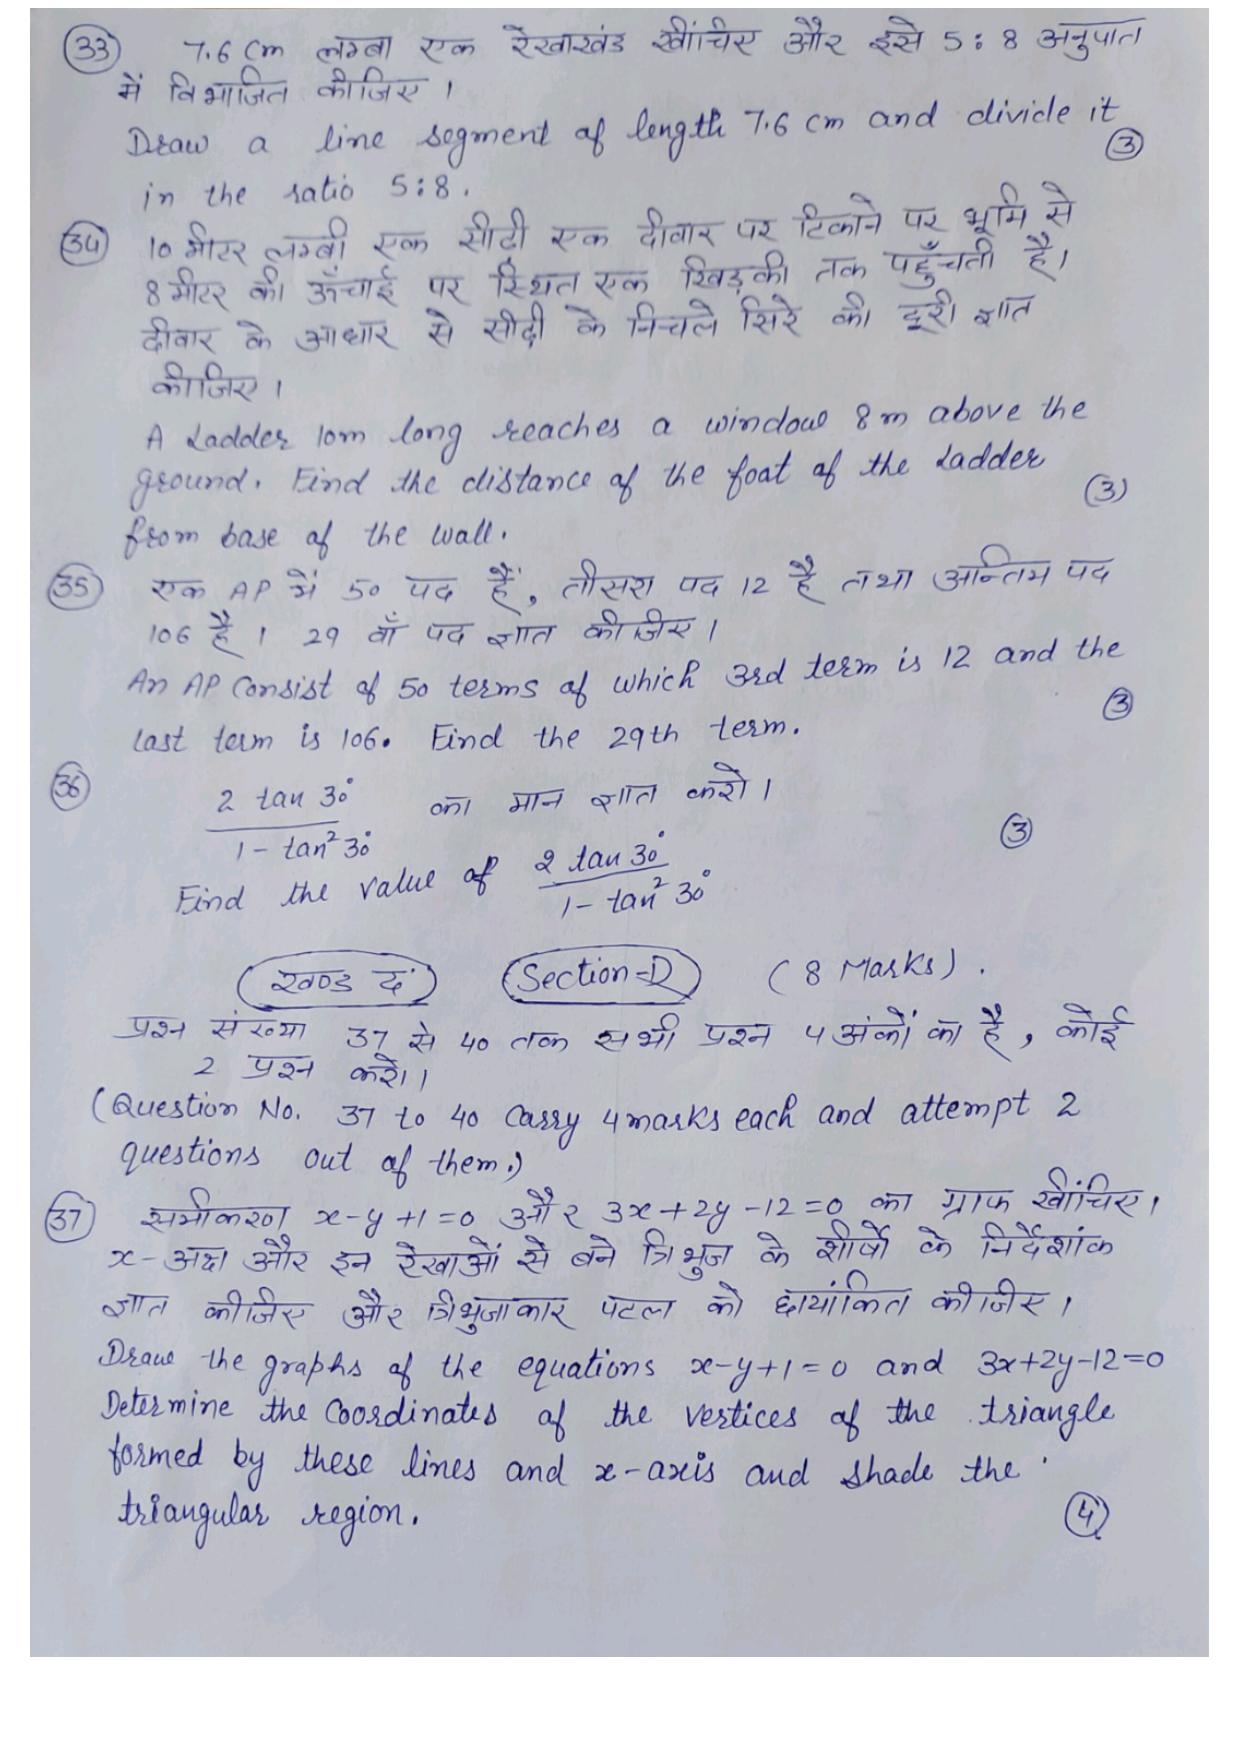 (33) 7.6 cm लम्बा एक रेखाखंड खींचिए और इसे 5:8 अनुपात
में विभाजित कीजिए।
Draw a line segment of length 7.6 cm and divide it
in the ratio 5:8. (3)
(34) 10 मीटर लम्बी एक सीढ़ी एक दीवार पर टिकाने पर भूमि से
8 मीटर की ऊँचाई पर स्थित एक खिड़की तक पहुँचती है।
दीवार के आधार से सीढ़ी के निचले सिरे की दूरी ज्ञात
कीजिए।
A Ladder 10m long reaches a window 8m above the
ground. Find the distance of the foat of the Ladder
from base of the wall. (3)
(35) एक AP में 50 पद हैं, तीसरा पद 12 है तथा अन्तिम पद
106 है। 29 वाँ पद ज्ञात कीजिए।
An AP Consist of 50 terms of which 3rd term is 12 and the
last term is 106. Find the 29th term. (3)
(36) 2 tan 30° / 1 - tan² 30° का मान ज्ञात करो।
Find the value of 2 tan 30° / 1 - tan² 30° (3)
खण्ड द Section-D (8 Marks).
प्रश्न संख्या 37 से 40 तक सभी प्रश्न 4 अंकों का है, कोई
2 प्रश्न करो।
(Question No. 37 to 40 Carry 4 marks each and attempt 2
questions out of them.)
(37) समीकरण x-y+1=0 और 3x+2y-12=0 का ग्राफ खींचिए।
x-अक्ष और इन रेखाओं से बने त्रिभुज के शीर्षो के निर्देशांक
ज्ञात कीजिए और त्रिभुजाकार पटल को छायांकित कीजिए।
Draw the graphs of the equations x-y+1=0 and 3x+2y-12=0
Determine the Coordinates of the vertices of the triangle
formed by these lines and x-axis and shade the
triangular region. (4)